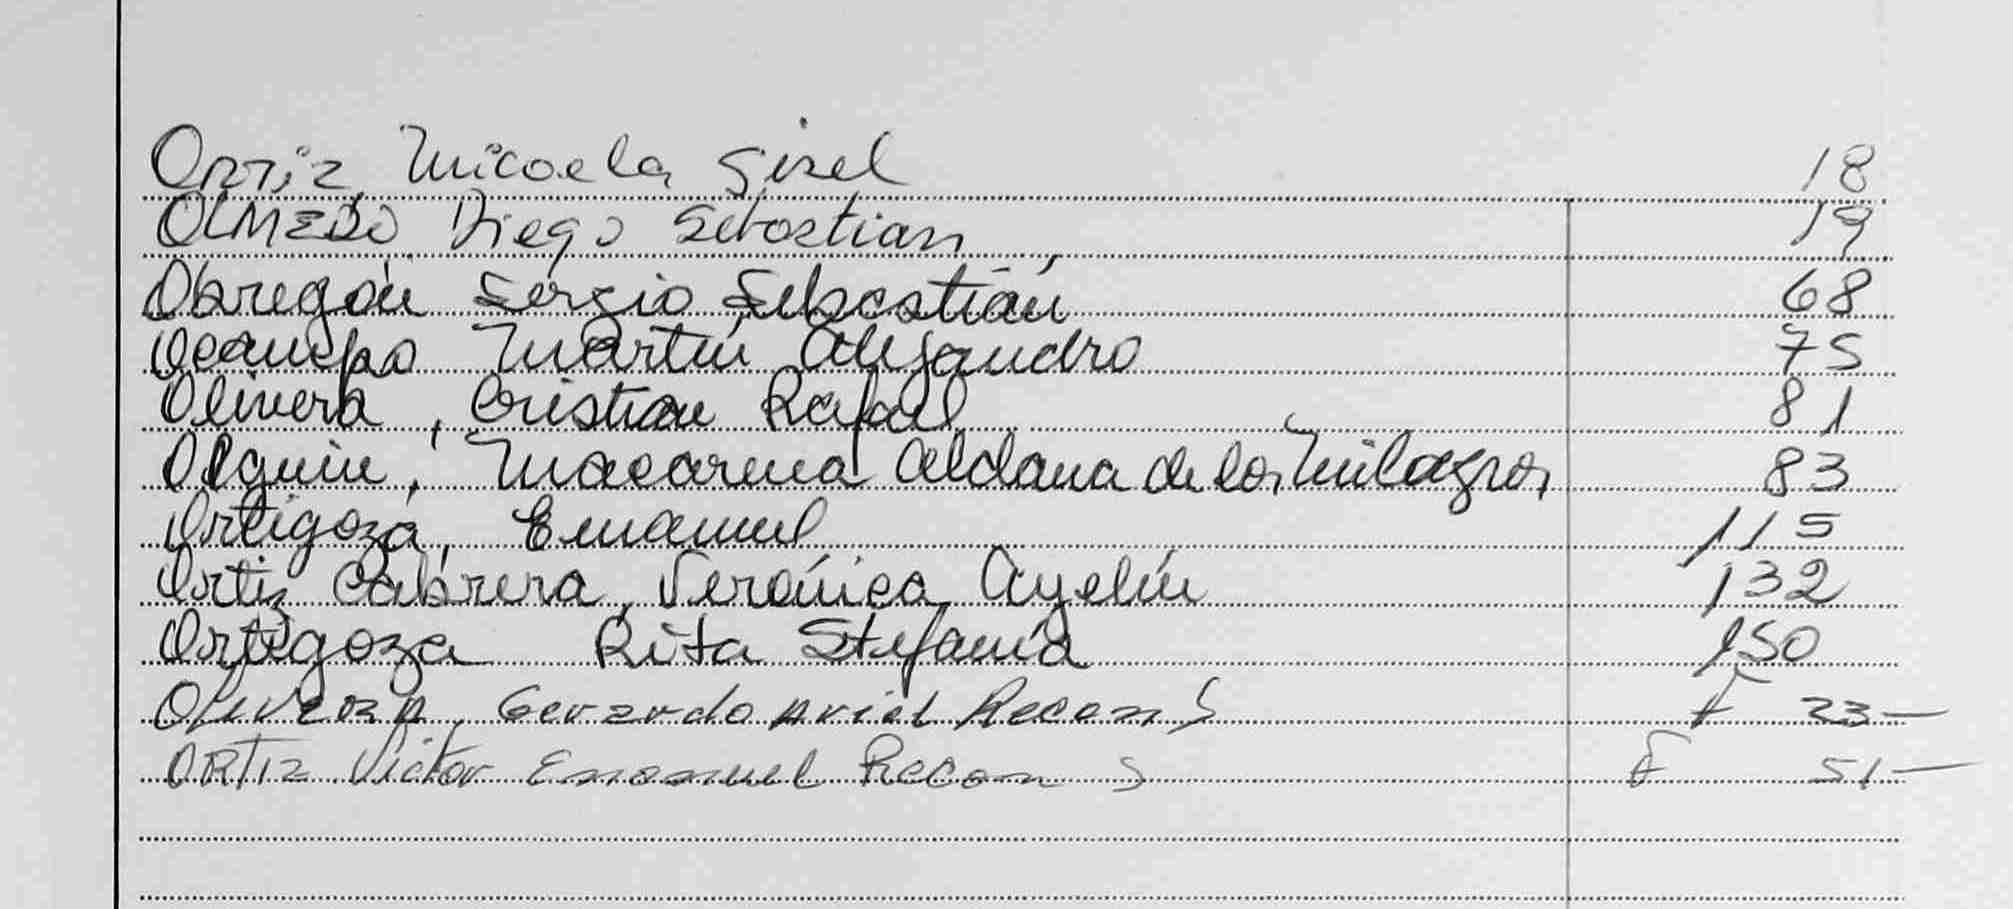 Ortiz, Micaela Gisel 18
OLMEDO Diego Sebastian 19
Obregón Sergio Sebastián 68
Ocampo Martín Alejandro 75
Olivera, Cristian Rafael 81
Olguin, Macarena Aldana de los Milagros 83
Ortigoza, Emanuel 115
Ortiz Cabrera, Verónica Ayelén 132
Ortigoza Rita Stefanía 150
Olivera, Gerardo Ariel Recon S F 23—
ORTIZ Victor Emanuel Recon S F 51—